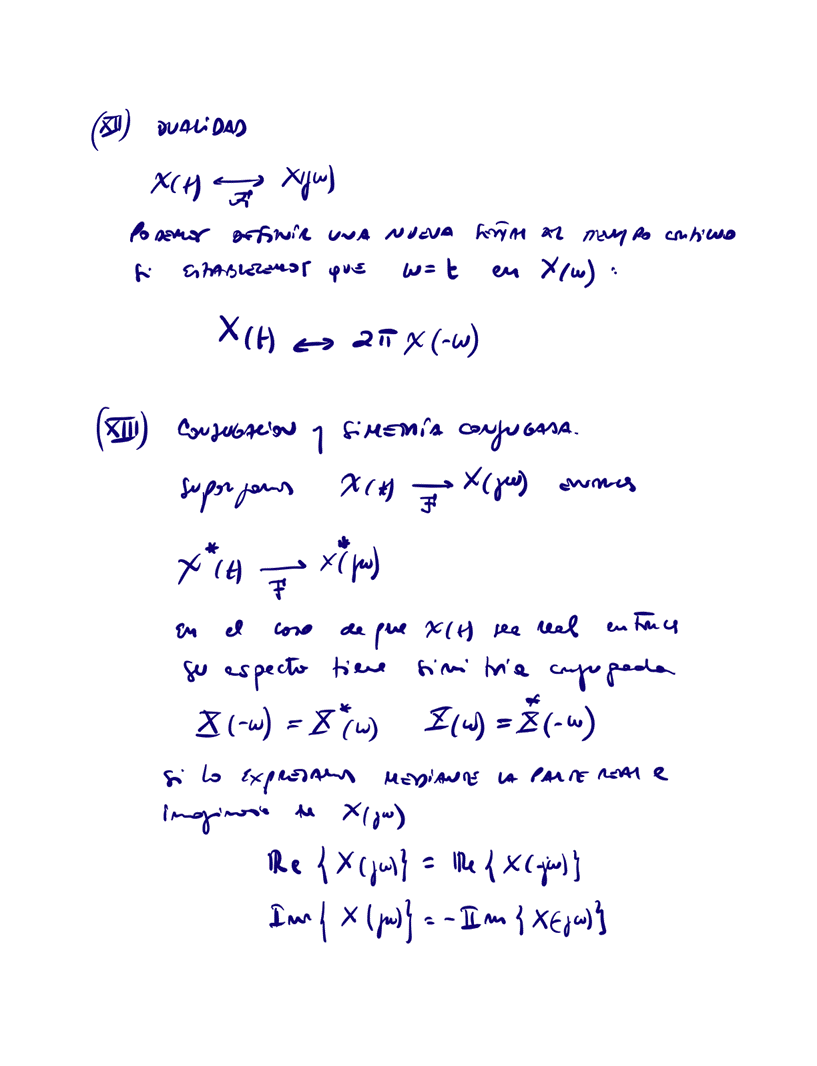 (XII) DUALIDAD
x(t) ⟷ X(jω)
F
PODEMOS DEFINIR UNA NUEVA SEÑAL DE TIEMPO CONTINUO
SI ESTABLECEMOS QUE ω = t en X(ω) :
X(t) ↔ 2π x(-ω)
(XIII) CONJUGACION Y SIMETRÍA CONJUGADA.
Supongamos x(t) ⟶ X(jω) entonces
F
x*(t) ⟶ X*(jω)
F
en el caso de que x(t) sea real entonces
su espectro tiene simetría conjugada
X(-ω) = X*(ω) X(ω) = X*(-ω)
Si lo EXPRESAMOS MEDIANTE LA PARTE REAL e
Imaginaria de X(jω)
Re { X(jω)} = Re { X(-jω)}
Im { X(jω)} = - Im { X(-jω)}